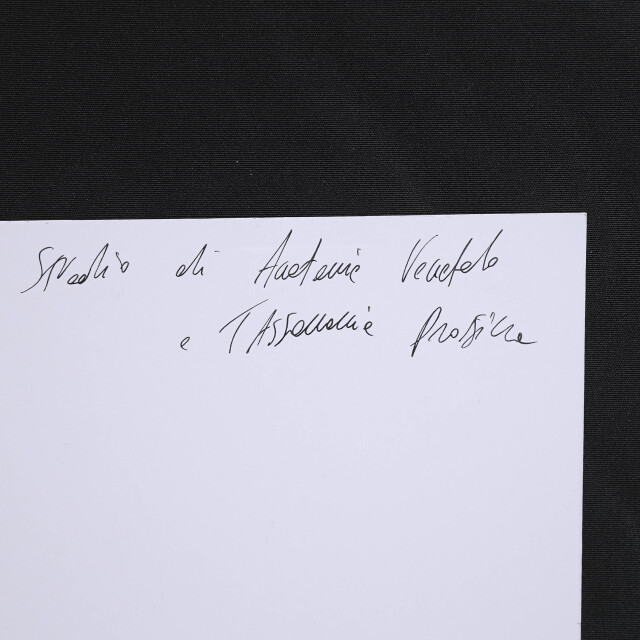 Studio di Anatomie Vegetale
e Tassonomia Prossima